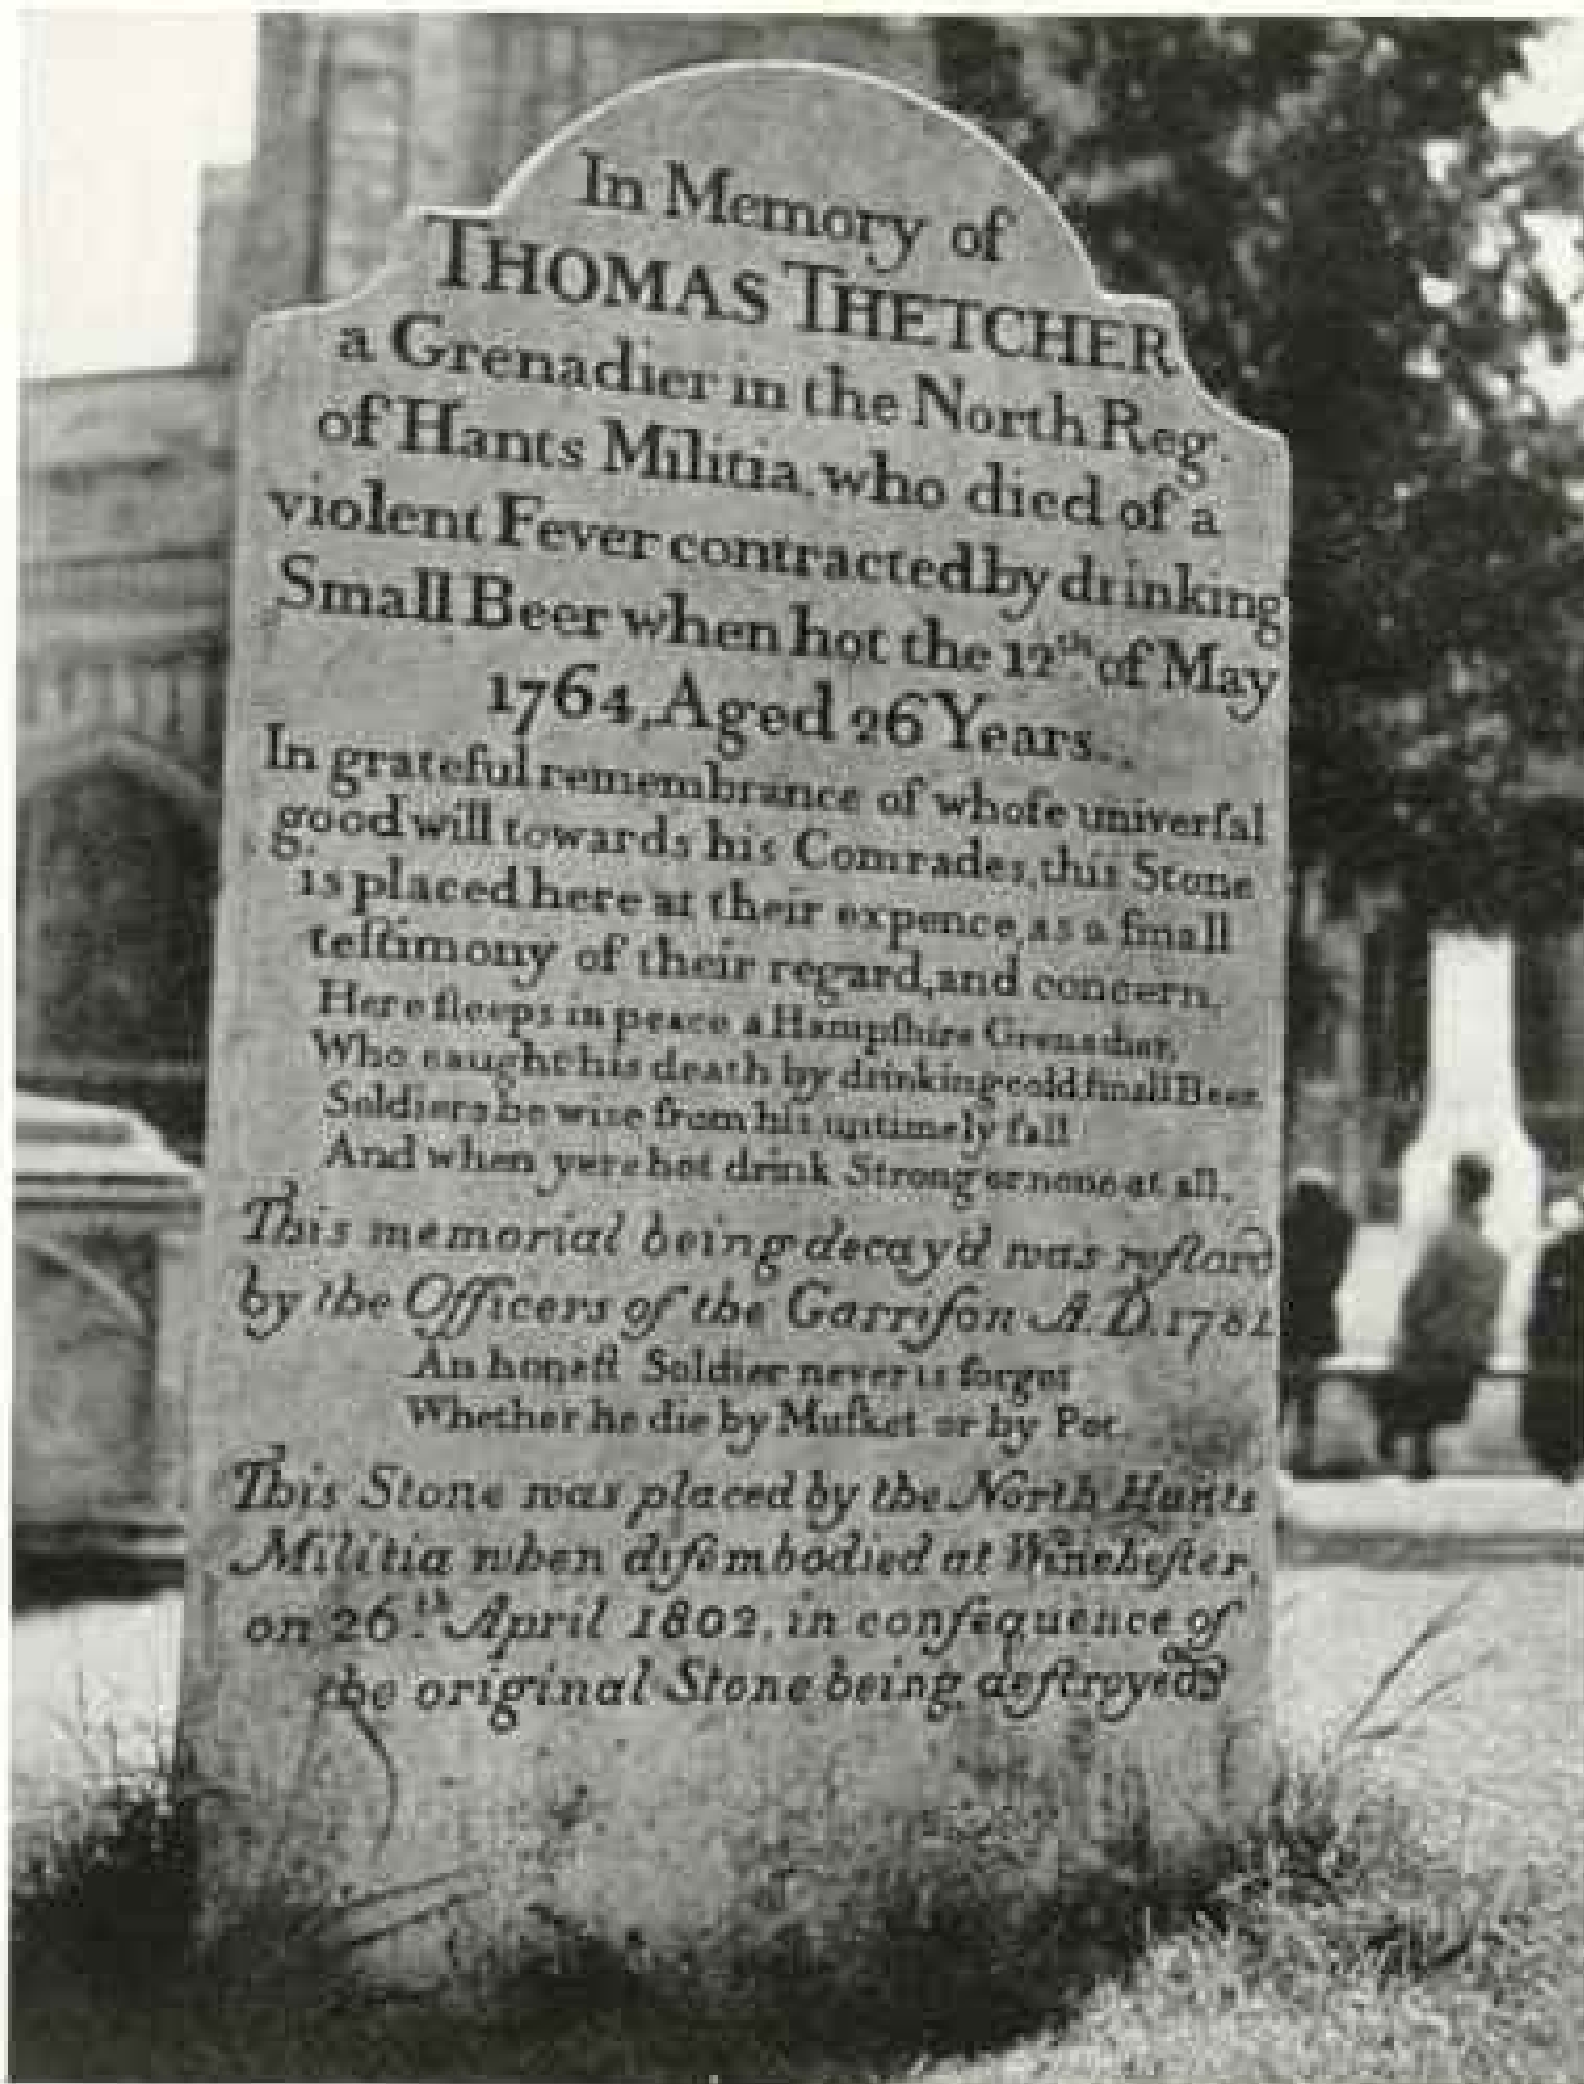 In Memory of
THOMAS THETCHER
a Grenadier in the North Reg.
of Hants Militia, who died of a
violent Fever contracted by drinking
Small Beer when hot the 12th of May
1764, Aged 26 Years.
In grateful remembrance of whoſe univerſal
good will towards his Comrades, this Stone
is placed here at their expence, as a ſmall
teſtimony of their regard, and concern.
Here ſleeps in peace a Hampſhire Grenadier,
Who caught his death by drinking cold ſmall Beer.
Soldiers be wise from his untimely fall
And when yere hot drink Strong or none at all.
This memorial being decay'd was reſtor'd
by the Officers of the Garriſon A.D. 1781.
An honeſt Soldier never is forgot
Whether he die by Muſket or by Pot.
This Stone was placed by the North Hants
Militia when diſembodied at Wincheſter,
on 26th April 1802, in conſequence of
the original Stone being deſtroyed